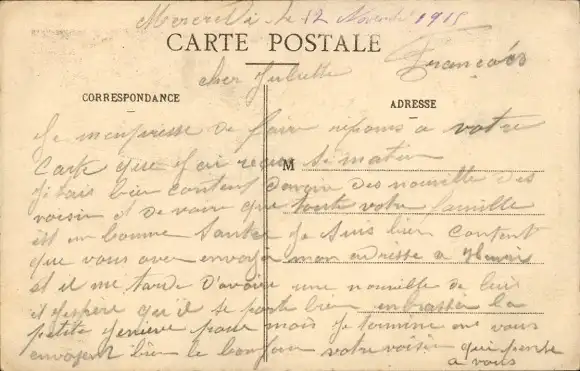 Mercredi le 12 Novembre 1915
CARTE POSTALE
Francais
cher Juliette
CORRESPONDANCE
ADRESSE
Je mempresse de faire repons a votre
Carte que J'ai recu se matin
M
J'etais bien content davoir des nouvelle des
voisin et de voir que toute votre famille
est en bonne Santee Je Suis bien Content
que vous avez envoyer mon adresse a Henri
et il me tarde D'avoire une nouvelle de lui
et J'espère qu'il se porte bien embrasser la
petite pour mois Je termine en vous
envoyent bien le bonjour votre voisin qui pense
a vous